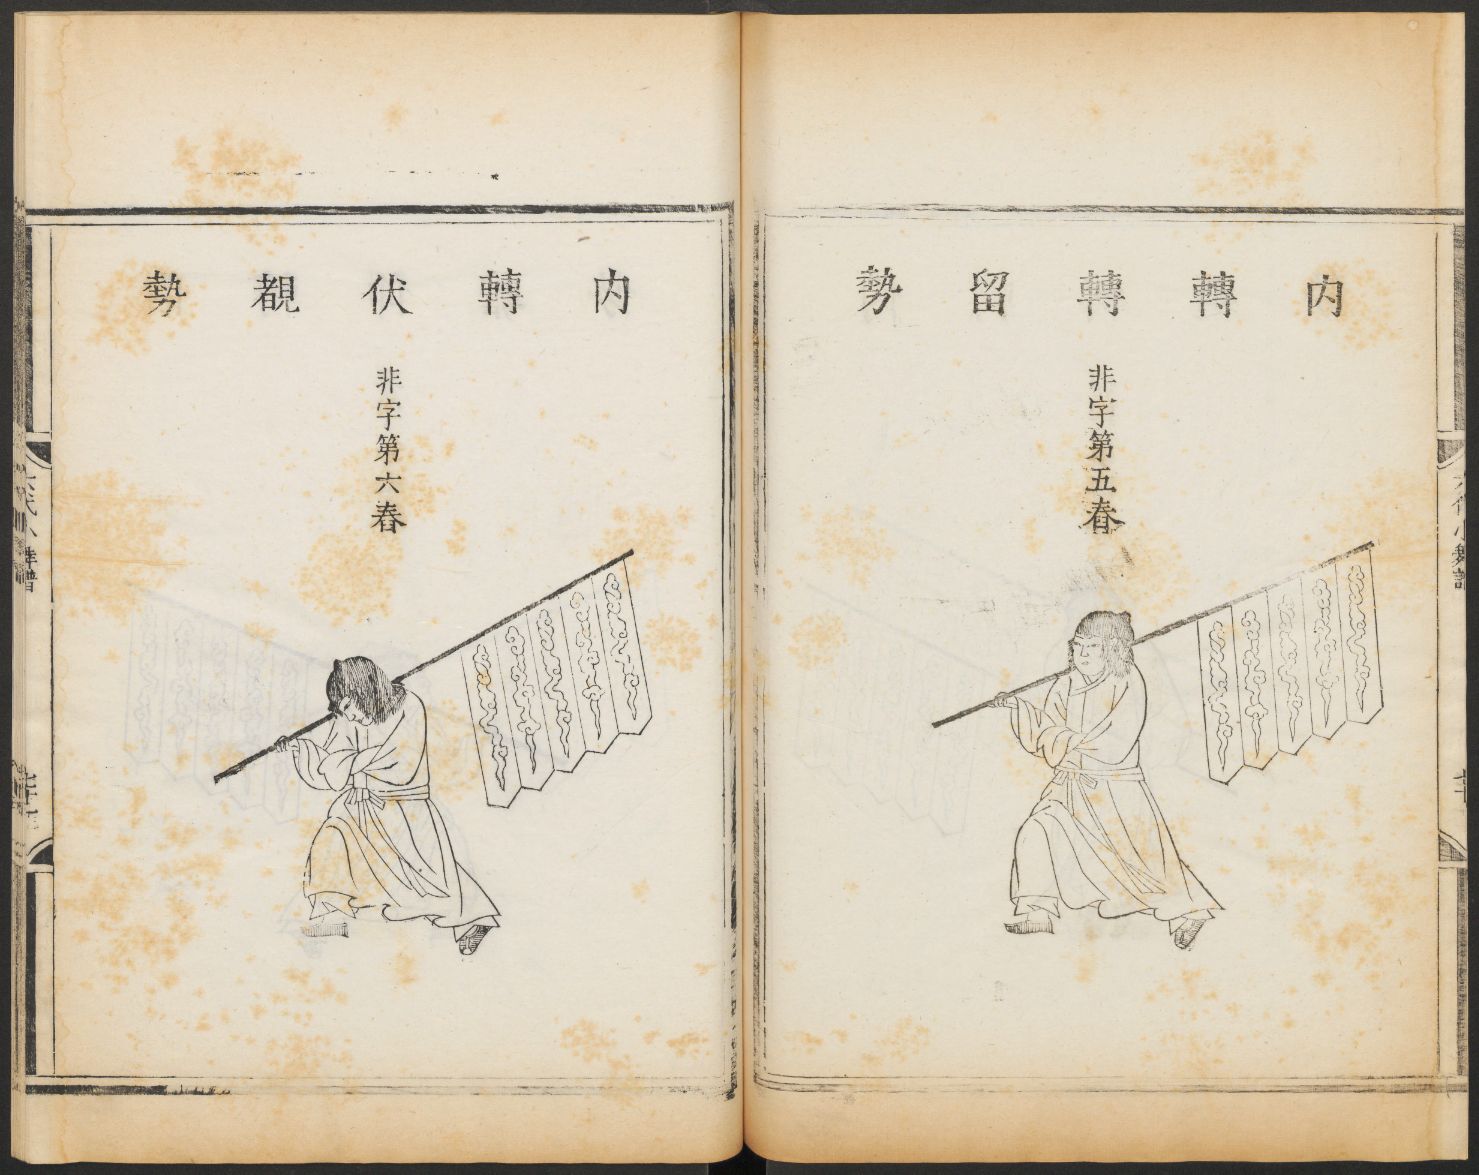 內轉轉留勢
非字第五舂
內轉伏覩勢
非字第六舂
小舞譜